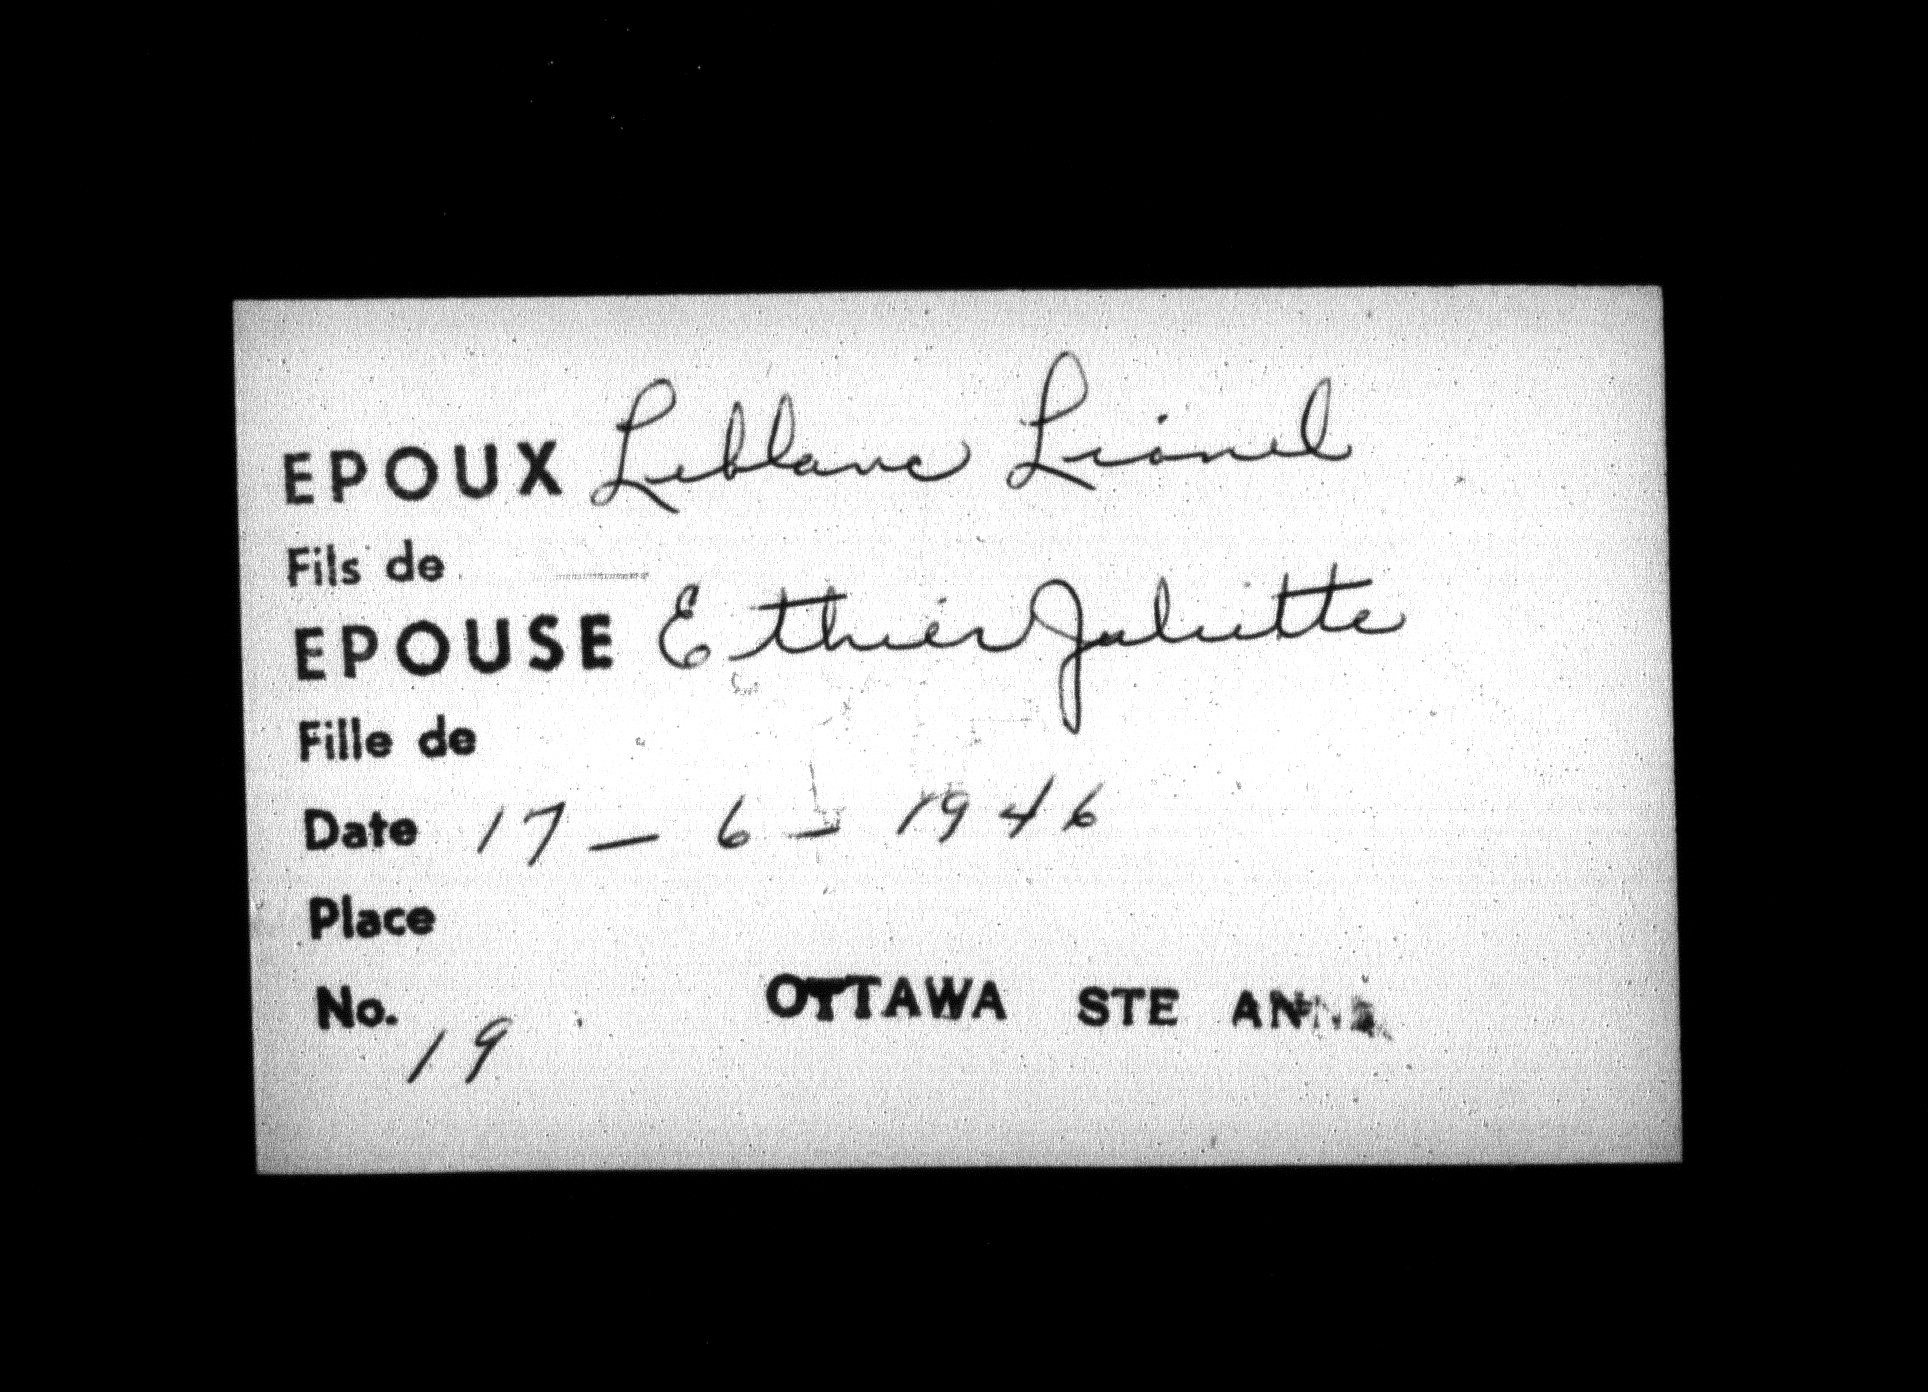 EPOUX Leblanc Lionel
Fils de
EPOUSE Ethier Juliette
Fille de
Date 17 - 6 - 1946
Place
No. 19
OTTAWA STE